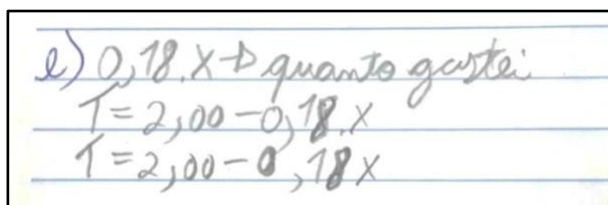 e) 0,18.x → quanto gastei
T = 2,00 - 0,18.x
T = 2,00 - 0,18x